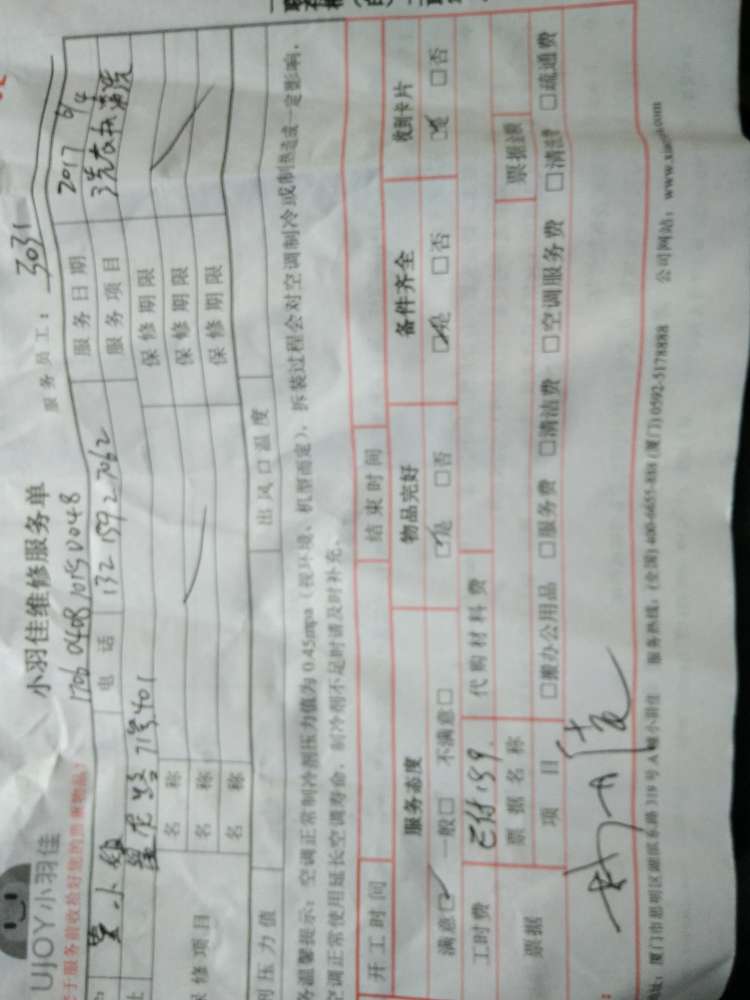 UJOY小羽佳
小羽佳维修服务单
服务员工：3031
于服务前收拾好您的贵重物品！
电话 132 1592 7062 服务日期 2017 6/4
服务项目 洗衣机清洗
71号401
名称 保修期限
修项目 名称 保修期限
名称 保修期限
压力值 出风口温度
温馨提示：空调正常制冷剂压力值为 0.45mpa（视环境、机型而定），拆装过程会对空调制冷或制热造成一定影响，
空调正常使用延长空调寿命，制冷剂不足时请及时补充。
开工时间 结束时间
服务态度 物品完好 备件齐全 收到卡片
满意☑ 一般□ 不满意□ ☑是 □否 ☑是 □否 ☑是 □否
工时费 已付159. 代购材料费
票据 票据名称 票据金额
项目 □搬办公用品 □服务费 □清洁费 □空调服务费 □清洗费 □疏通费
厦门市思明区湖滨东路 319 号 A 幢小羽佳 服务热线：(全国) 400-6655-888 (厦门) 0592-5178888 公司网站：